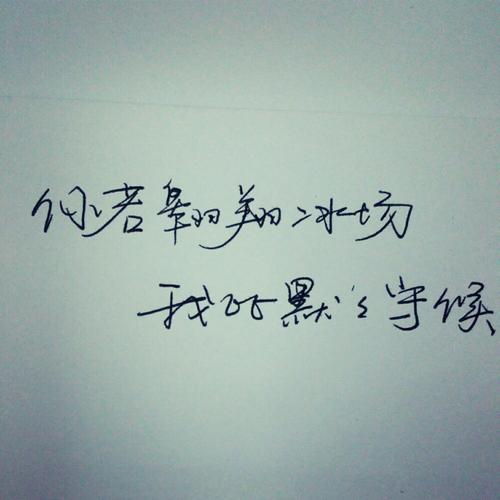 你若翱翔冰场
我必默々守候